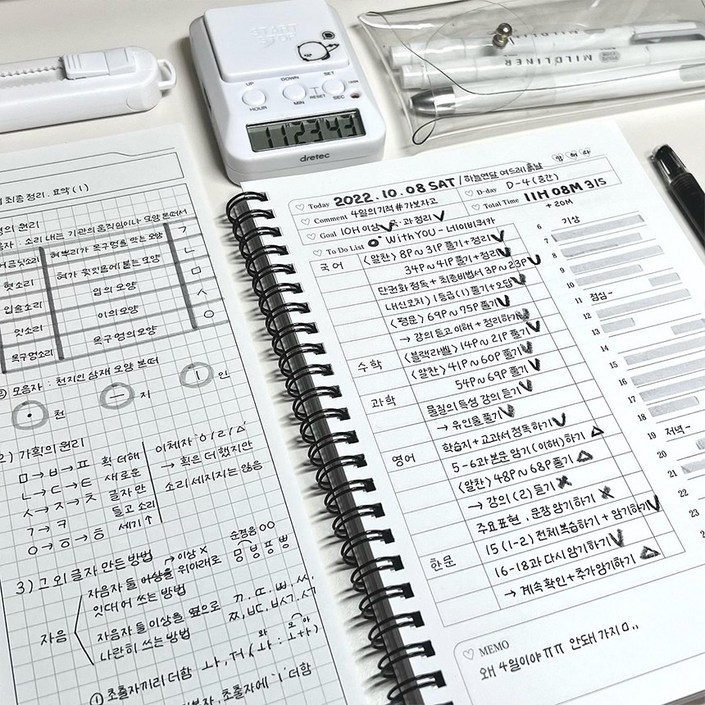 START
STOP
UP
DOWN
SET
HOUR
MIN
RESET
SEC
112343
dretec
MILDLINER
MILDLINER
최종 정리. 요약 (1)
의 원리
소리 내는 기관의 움직임이나 모양 본떠서
어금닛소리 혀뿌리가 목구멍을 막는 모양 ㄱ
혓소리 혀가 윗잇몸에 붙는 모양 ㄴ
입술소리 입의 모양 ㅁ
잇소리 이의 모양 ㅅ
목구멍소리 목구멍의 모양 ㅇ
모음자 : 천지인 삼재 모양 본떠
• 천 ㅡ 지 ㅣ 인
2) 가획의 원리
ㅁ → ㅂ → ㅍ
ㄴ → ㄷ → ㅌ
ㅅ → ㅈ → ㅊ
ㄱ → ㅋ
ㅇ → ㆆ → ㅎ
획 더해
새로운
글자 만
들고 소리
세기 ↑
이체자 ㆁ/ㄹ/ㅿ
→ 획은 더했지만
소리 세지지는 않음
3) 그 외 글자 만든 방법
→ 이상 X
순경음 ㅇㅇ
자음
자음자 둘 이상을 위아래로
잇대어 쓰는 방법
ㅱ ㅸ ㆄ ㅹ
자음자 둘 이상을 옆으로
나란히 쓰는 방법
ㄲ. ㄸ. ㅃ. ㅆ.
① 초출자끼리 더함 ㅘ, ㅝ (ㅘ : ㅗ+ㅏ)
초출자에 'ㅣ' 더함
Today 2022.10.08 SAT / 하늘연달 여드레 흙날
Comment 4월의 기적 #가보자고
D-day D-4 (중간)
Goal 10H 이상 국·과 정리
Total Time 11H 08M 31S
+ 20M
To Do List With YOU - 네이비쿼카
국어 〈알찬〉 8P ~ 31P 풀기 + 정리
34P ~ 41P 풀기 + 정리
단권화 정독 + 최종비법서 3P ~ 23P
내신코치) 1등급 (1) 풀기 + 오답
〈평문〉 69P ~ 75P 풀기
→ 강의 듣고 이해 + 정리하기
수학 〈블랙라벨〉 14P ~ 21P 풀기
〈알찬〉 41P ~ 60P 풀기
54P ~ 69P 풀기
과학 물질의 특성 강의 듣기
→ 유인물 풀기
학습지 + 교과서 정독하기
영어 5-6과 본문 암기 (이해) 하기
〈알찬〉 48P ~ 68P 풀기
→ 강의 (2) 듣기
주요 표현, 문장 암기하기
15 (1-2) 전체 복습하기 + 암기하기
한문 16-18과 다시 암기하기
→ 계속 확인 + 추가 암기하기
6 기상
7
8
9
10
11 점심~
12
13
14
15
16
17
18
19 저녁~
20
21
22
23
24
MEMO
왜 4월이야 ㅠㅠ 안돼 가지 마..